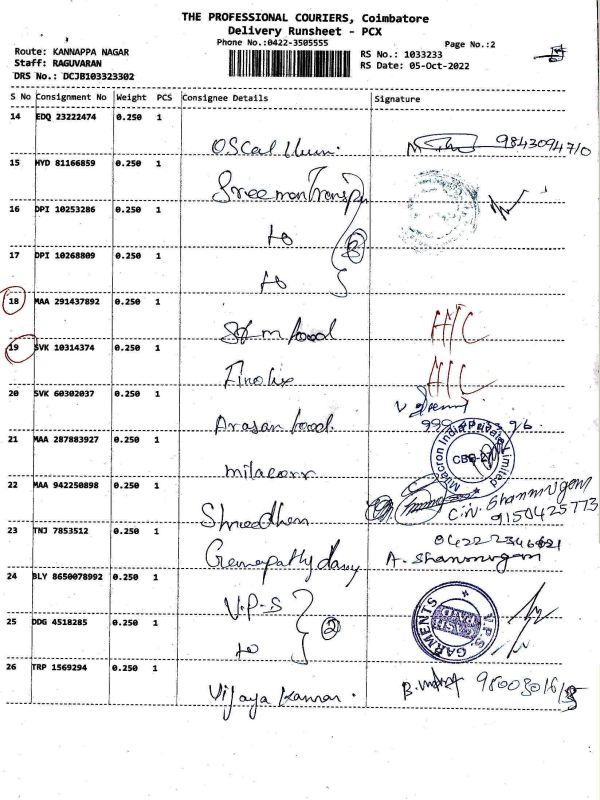 THE PROFESSIONAL COURIERS, Coimbatore
Delivery Runsheet - PCX
Phone No.:0422-3505555
Page No.:2
Route: KANNAPPA NAGAR
RS No.: 1033233
Staff: RAGUVARAN
RS Date: 05-Oct-2022
DRS No.: DCJB103323302
S No Consignment No Weight PCS Consignee Details Signature
14 EDQ 23222474 0.250 1
9843094710
15 HYD 81166859 0.250 1
16 DPI 10253286 0.250 1
to
3
17 DPI 10268809 0.250 1
to
18 MAA 291437892 0.250 1
food
19 SVK 10314374 0.250 1
20 SVK 60302037 0.250 1
Arasan food
21 MAA 287883927 0.250 1
Milacron India Private Limited
22 MAA 942250898 0.250 1
C.N. Shanmugam
9150425773
23 TNJ 7853512 0.250 1
A. Shanmugam
24 BLY 8650078992 0.250 1
V.P.S
25 DDG 4518285 0.250 1
to
2
V.P.S. GARMENTS
26 TRP 1569294 0.250 1
Vijaya Kannan.